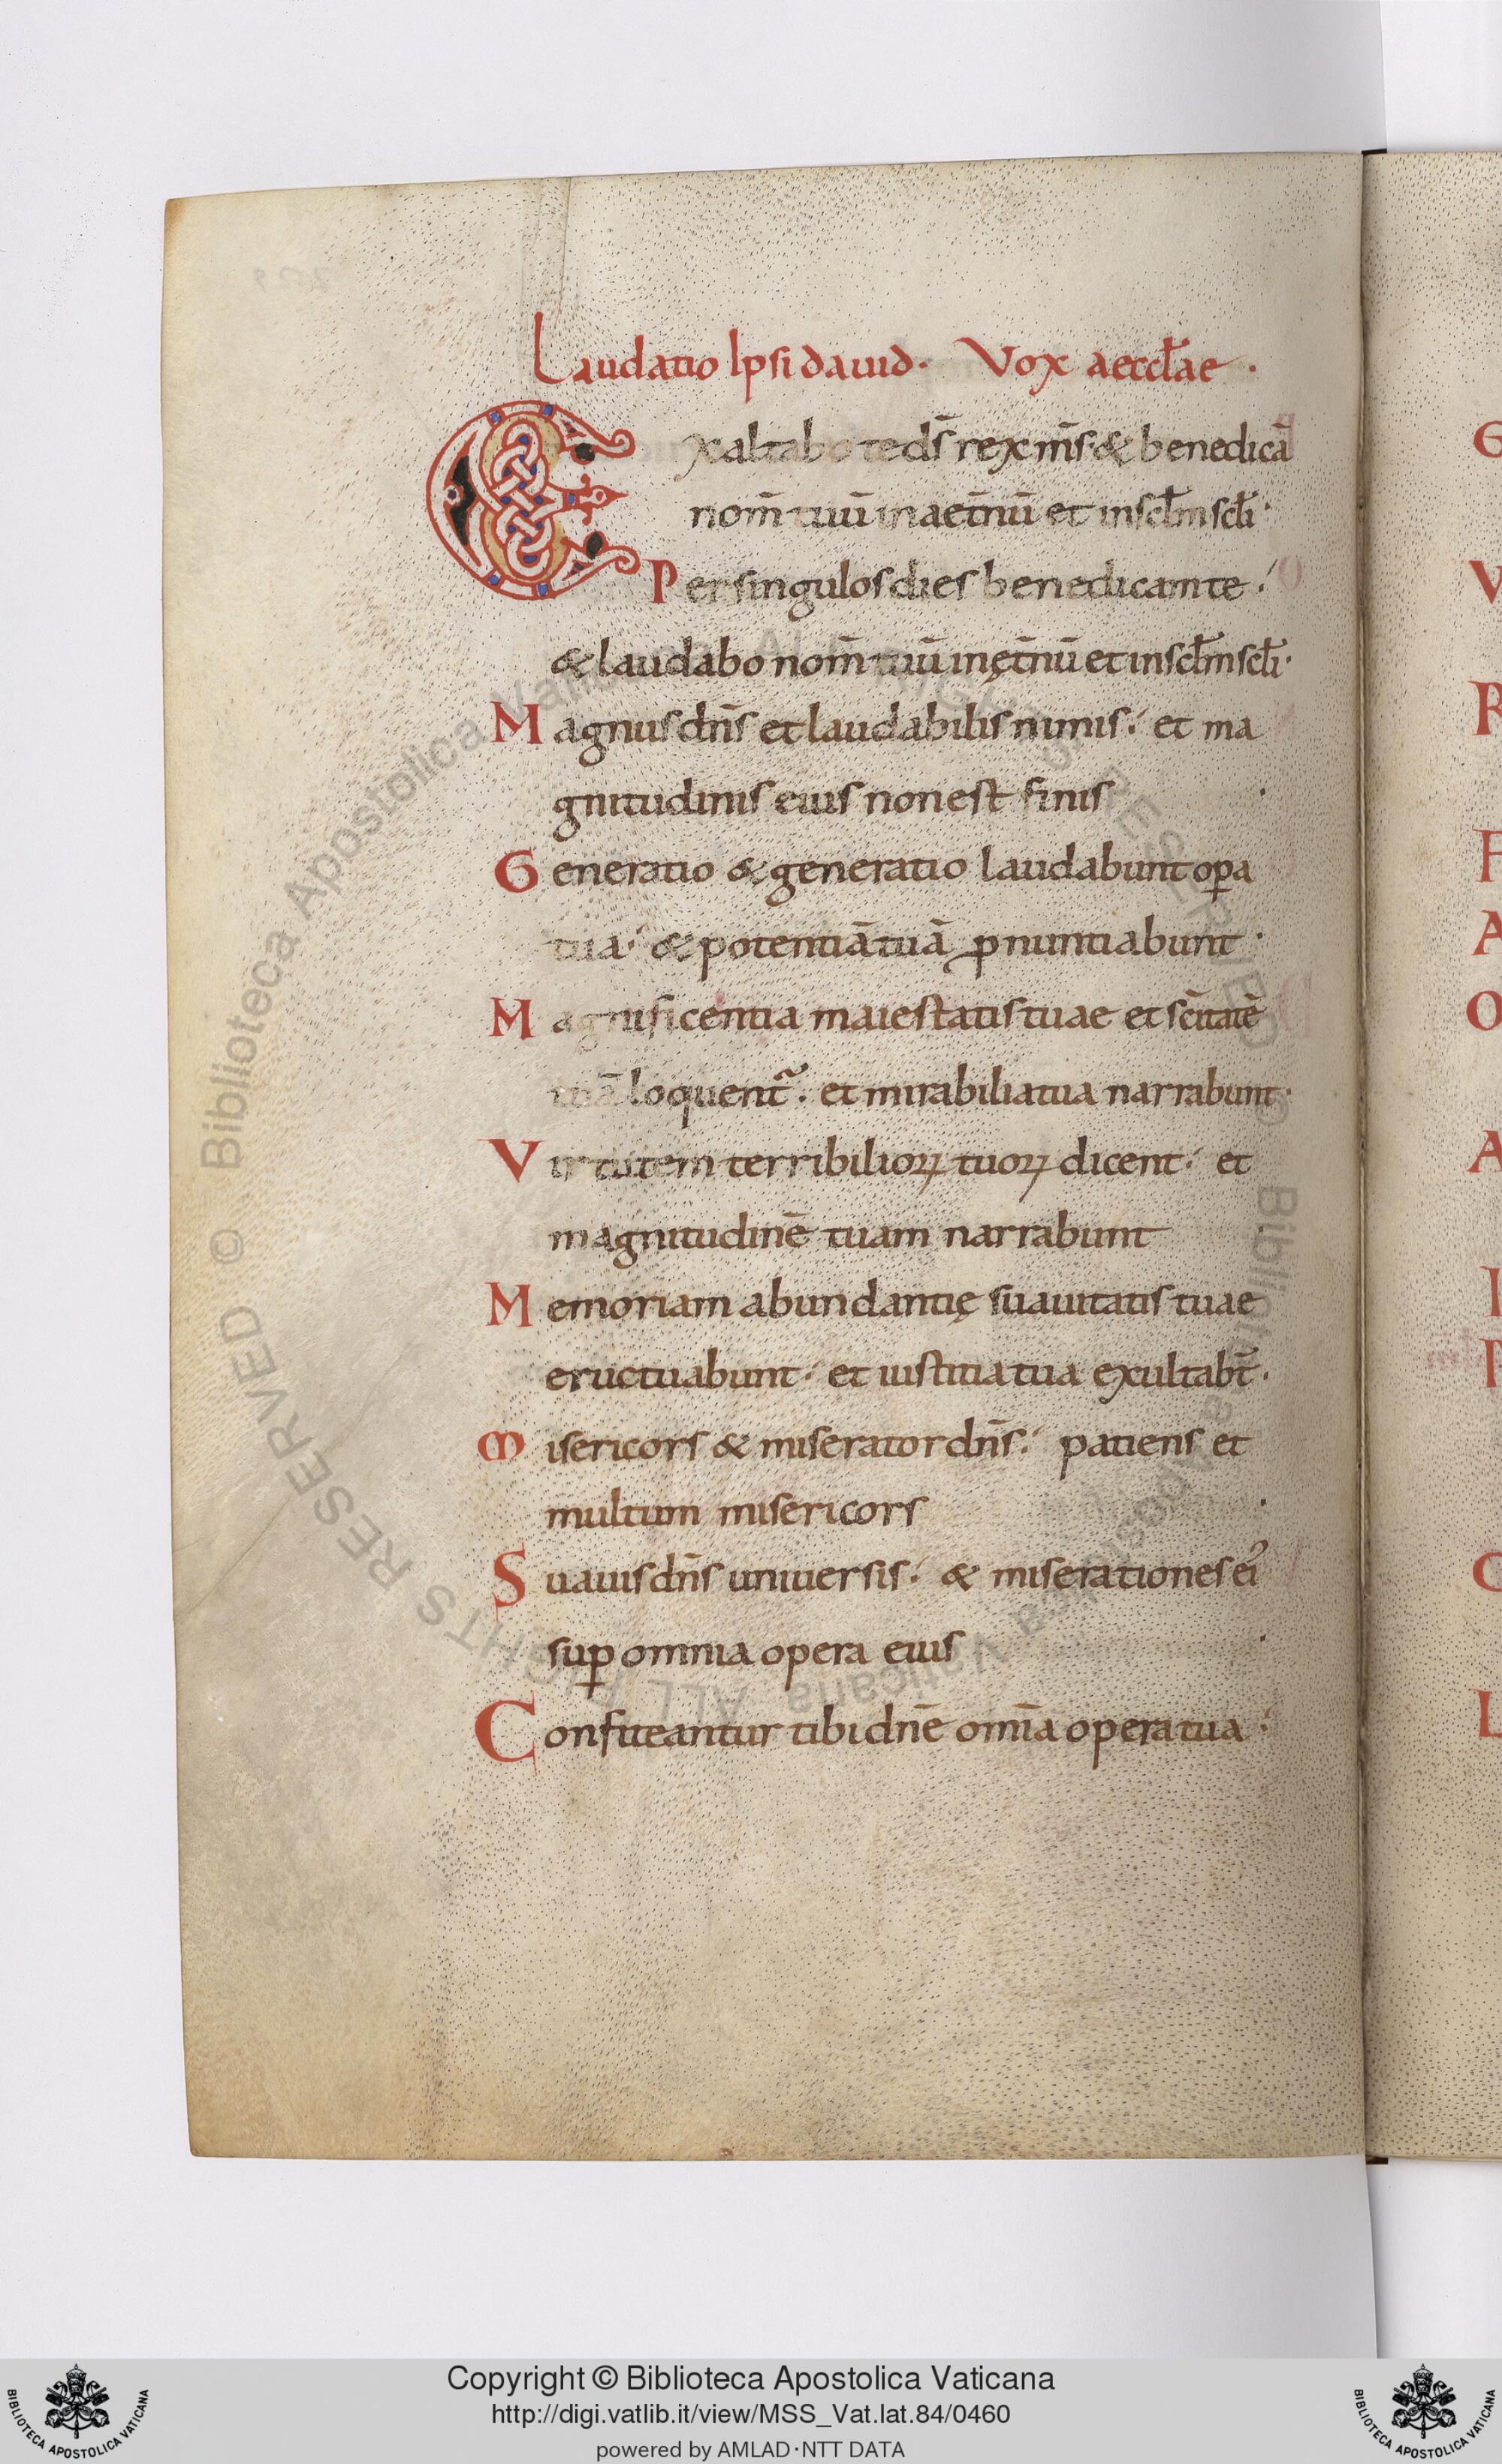 Laudatio Ipsi dauid· Vox aeccl̄ae ·
Exaltabo te ds̄ rex ms̄· & benedicā
nom̄ tuū in aet̄nū et in scl̄m scl̄i·
Per singulos dies benedicam te ·
& laudabo nom̄ tuū in ęt̄nū et in scl̄m scl̄i·
Magnus dn̄s et laudabilis nimis· et ma
gnitudinis eius non est finis ·
Generatio & generatio laudabunt oꝑa
tua· & potentiā tuā ꝓnuntiabunt ·
Magnificentia maiestatis tuae et sc̄itatē
tuā loquent̃· et mirabilia tua narrabunt·
Virtutem terribilioꝝ tuoꝝ dicent· et
magnitudinē tuam narrabunt
Memoriam abundantię suauitatis tuae
eructuabunt· et iustitia tua exultabt̄·
Misericors & miserator dn̄s· patiens et
multum misericors ·
Suauis dn̄s uniuersis· & miserationes ei᾽
suꝑ omnia opera eius ·
Confiteantur tibi dn̄e om̄ia opera tua ·
G
V
R
F
A
O
A
I
C
L
Copyright © Biblioteca Apostolica Vaticana
http://digi.vatlib.it/view/MSS_Vat.lat.84/0460
powered by AMLAD·NTT DATA
BIBLIOTECA APOSTOLICA VATICANA
BIBLIOTECA APOSTOLICA VATICANA